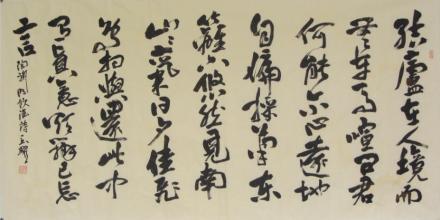 結廬在人境而
無車馬喧問君
何能尔心遠地
自偏採菊東
籬下悠然見南
山山氣日夕佳飛
鳥相與還此中
有真意欲辯已忘
言 陶淵明飲酒詩